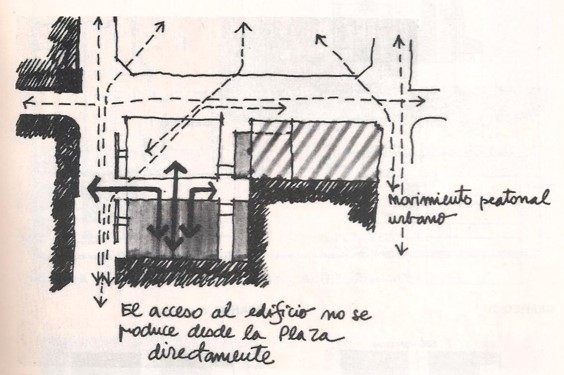 movimiento peatonal
urbano
El acceso al edificio no se
produce desde la Plaza
directamente